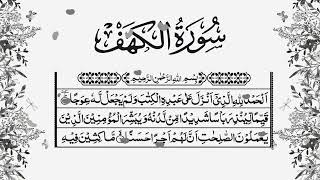 سُوْرَةُ الْكَهْفِ
بِسْمِ اللّٰهِ الرَّحْمٰنِ الرَّحِيْمِ
اَلْحَمْدُ لِلّٰهِ الَّذِيْۤ اَنْزَلَ عَلٰى عَبْدِهِ الْكِتٰبَ وَلَمْ يَجْعَلْ لَّهٗ عِوَجًا
قَيِّمًا لِّيُنْذِرَ بَاْسًا شَدِيْدًا مِّنْ لَّدُنْهُ وَيُبَشِّرَ الْمُؤْمِنِيْنَ الَّذِيْنَ
يَعْمَلُوْنَ الصّٰلِحٰتِ اَنَّ لَهُمْ اَجْرًا حَسَنًا مَّاكِثِيْنَ فِيْهِ